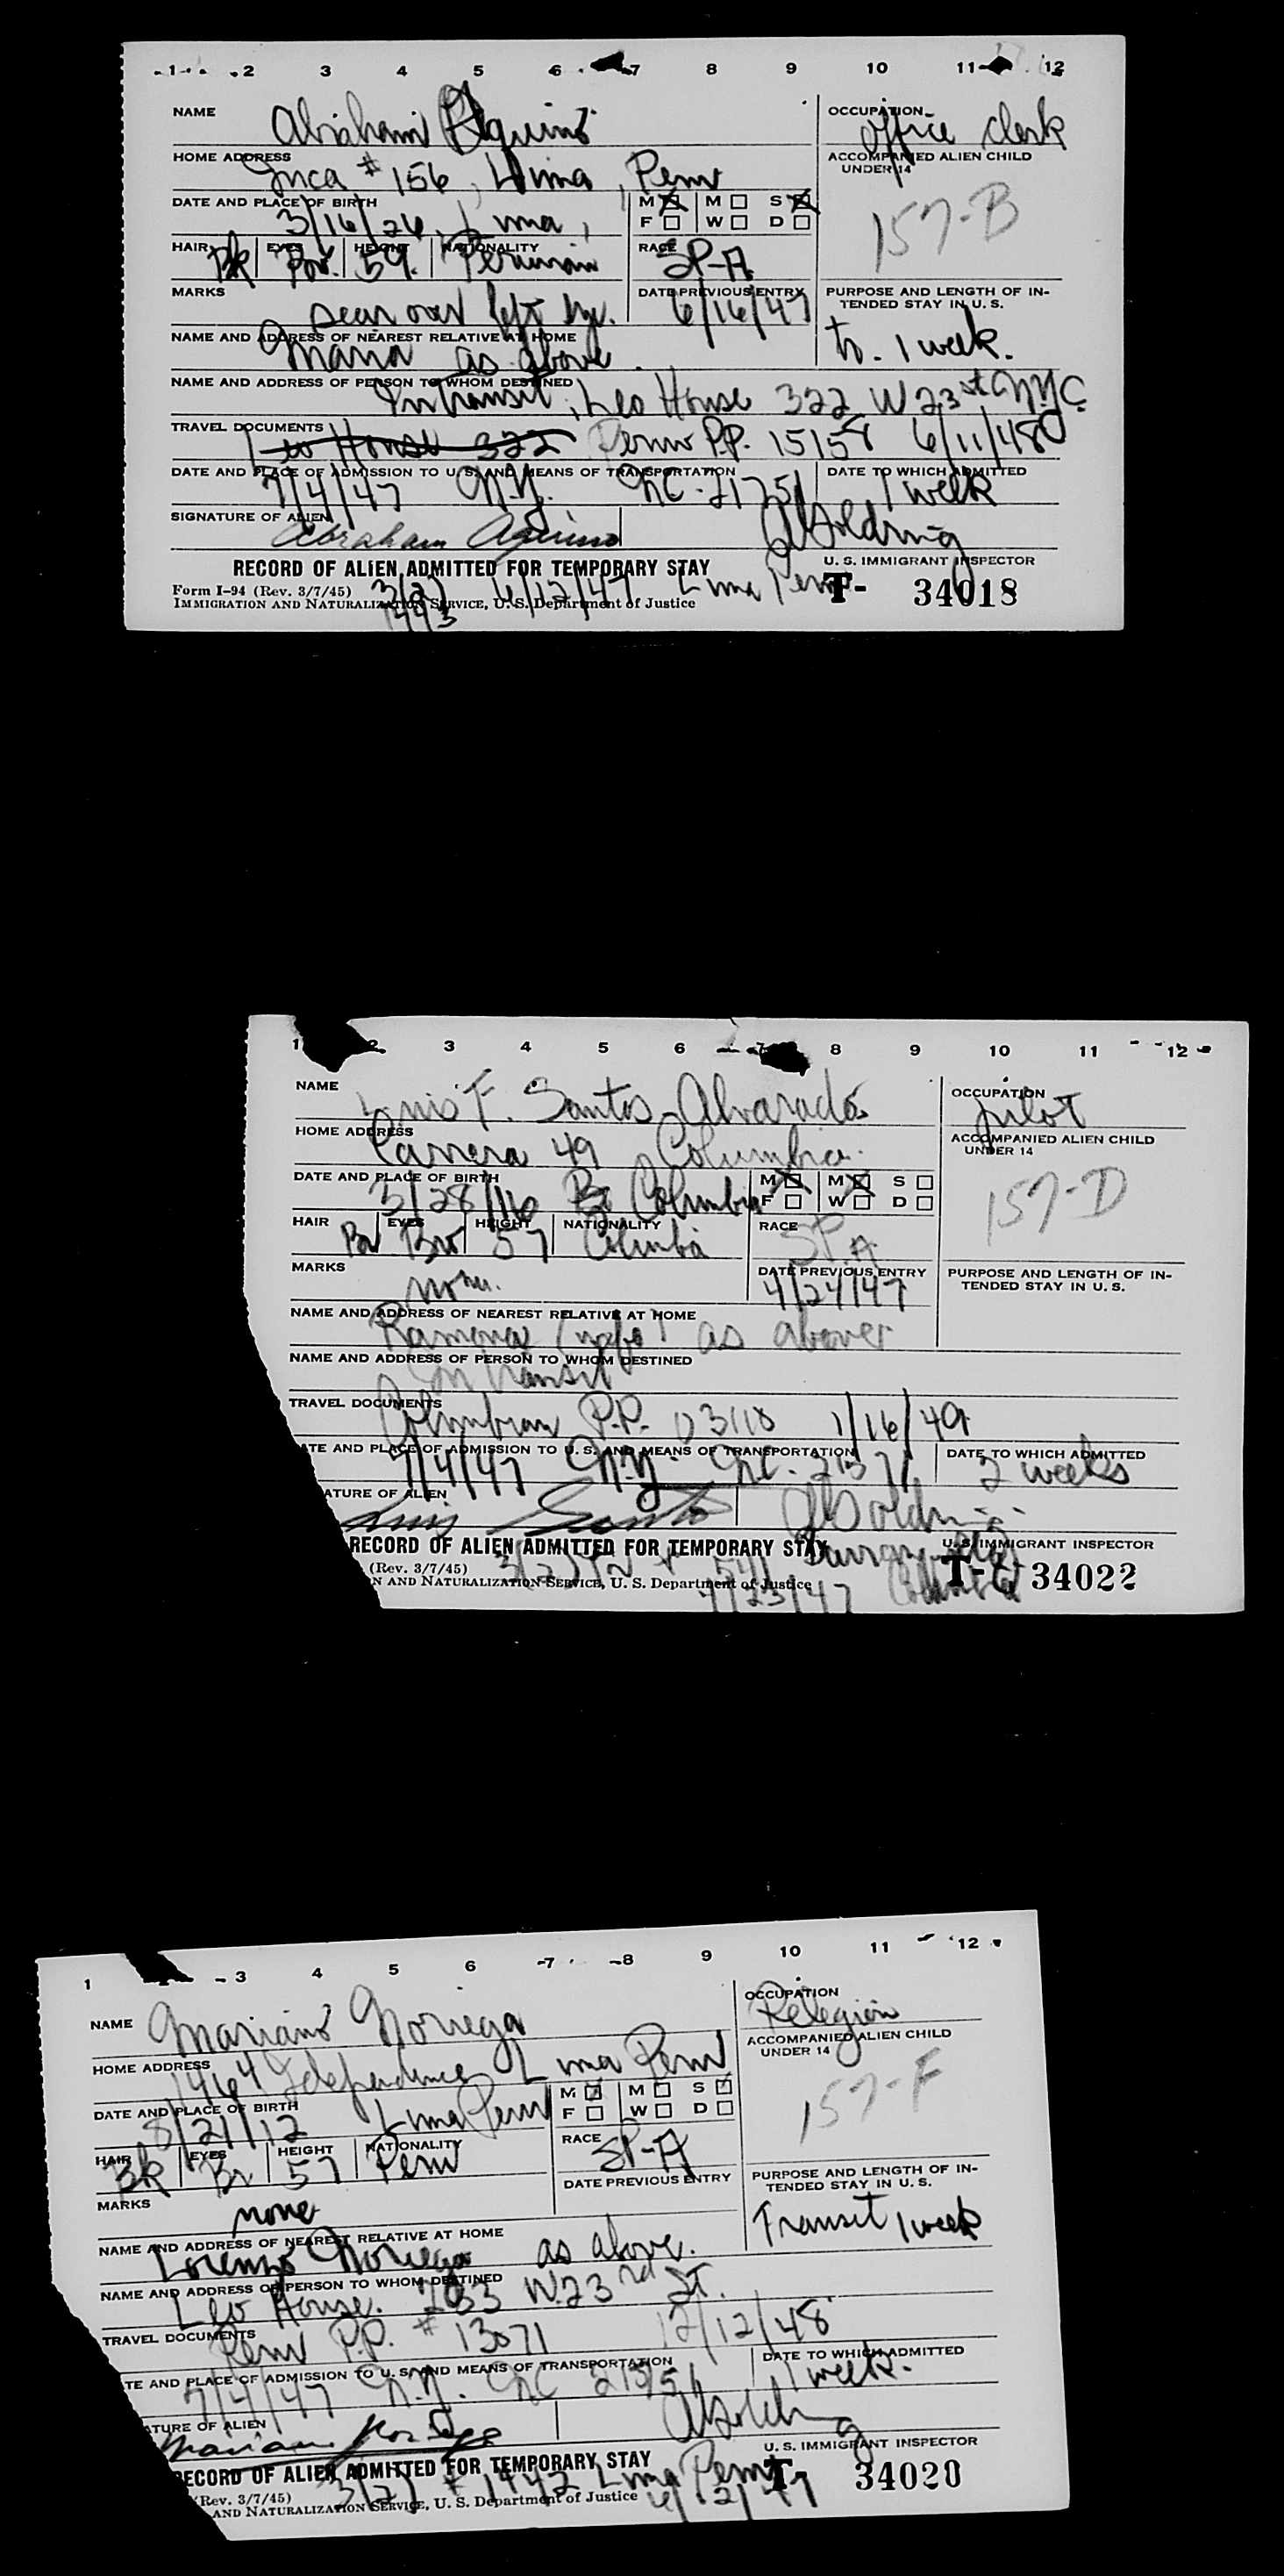 1 2 3 4 5 6 7 8 9 10 11 12
NAME Abraham Aquino OCCUPATION office clerk
HOME ADDRESS Inca # 156, Lima, Peru ACCOMPANIED ALIEN CHILD UNDER 14
157-B
DATE AND PLACE OF BIRTH 3/16/26, Lima, M M S
F W D
HAIR Bk EYES Br. HEIGHT 59. NATIONALITY Peruvian RACE SP-A
MARKS scar over left eye. DATE PREVIOUS ENTRY 6/16/47 PURPOSE AND LENGTH OF IN-
TENDED STAY IN U. S.
tr. 1 week.
NAME AND ADDRESS OF NEAREST RELATIVE AT HOME Maria as above.
NAME AND ADDRESS OF PERSON TO WHOM DESTINED In transit, Leo House 322 W 23 st NYC
TRAVEL DOCUMENTS Leo House 322 Peru P.P. 15158 6/11/48
DATE AND PLACE OF ADMISSION TO U. S. AND MEANS OF TRANSPORTATION 7/4/47 N.Y. NC-21751 DATE TO WHICH ADMITTED 1 week
SIGNATURE OF ALIEN Abraham Aquino
U. S. IMMIGRANT INSPECTOR
RECORD OF ALIEN ADMITTED FOR TEMPORARY STAY
Form I-94 (Rev. 3/7/45) 3(2) 6/12/47 Lima Peru T- 34018
IMMIGRATION AND NATURALIZATION SERVICE, U. S. Department of Justice
1443
1 2 3 4 5 6 7 8 9 10 11 12
NAME Luis F. Santos-Alvarado OCCUPATION pilot
HOME ADDRESS Carrera 49 Columbia. ACCOMPANIED ALIEN CHILD UNDER 14
157-D
DATE AND PLACE OF BIRTH 3/28/16 Bo Columbia M M S
F W D
HAIR Br EYES Br HEIGHT 57 NATIONALITY Columbia RACE SP.A
MARKS none. DATE PREVIOUS ENTRY 4/24/47 PURPOSE AND LENGTH OF IN-
TENDED STAY IN U. S.
NAME AND ADDRESS OF NEAREST RELATIVE AT HOME Ramona (wife) as above
NAME AND ADDRESS OF PERSON TO WHOM DESTINED In transit
TRAVEL DOCUMENTS Columbian P.P. 03118 1/16/49
ATE AND PLACE OF ADMISSION TO U. S. AND MEANS OF TRANSPORTATION 7/4/47 N.Y. NC. DATE TO WHICH ADMITTED 2 weeks
ATURE OF ALIEN Luis Santos
U. S. IMMIGRANT INSPECTOR
RECORD OF ALIEN ADMITTED FOR TEMPORARY STAY
(Rev. 3/7/45) 3(2) T- 34022
N AND NATURALIZATION SERVICE, U. S. Department of Justice
/23/47
1 3 4 5 6 7 8 9 10 11 12
NAME Mariano Noriega OCCUPATION Relegion
HOME ADDRESS 1464 Idependence Lima Peru ACCOMPANIED ALIEN CHILD UNDER 14
157-F
DATE AND PLACE OF BIRTH 8/21/12 Lima Peru M M S
F W D
HAIR BR EYES Br HEIGHT 57 NATIONALITY Peru RACE SP-A
DATE PREVIOUS ENTRY PURPOSE AND LENGTH OF IN-
TENDED STAY IN U. S.
MARKS none
Transit 1 week
NAME AND ADDRESS OF NEAREST RELATIVE AT HOME Lorenzo Noriega as above.
NAME AND ADDRESS OF PERSON TO WHOM DESTINED Leo House. W. 23 rd St.
TRAVEL DOCUMENTS Peru P.P. # 13071 12/12/48
TE AND PLACE OF ADMISSION TO U. S. AND MEANS OF TRANSPORTATION 7/4/47 N.Y. NC 21751 DATE TO WHICH ADMITTED 1 week.
ATURE OF ALIEN Mariano Noriega
U. S. IMMIGRANT INSPECTOR
RECORD OF ALIEN ADMITTED FOR TEMPORARY STAY
(Rev. 3/7/45) 3(2) # 1442 Lima Peru T- 34020
AND NATURALIZATION SERVICE, U. S. Department of Justice 6/12/47